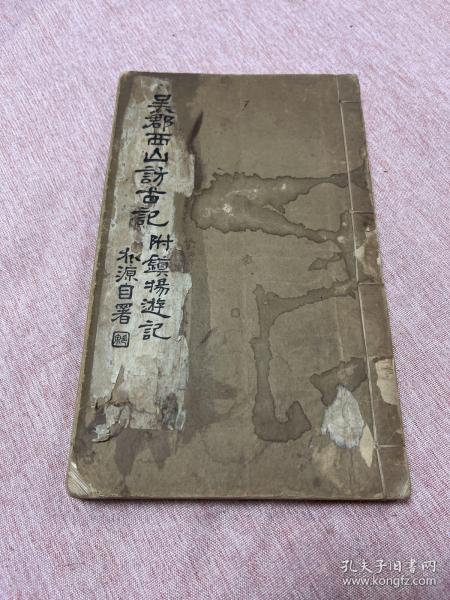 吴郡西山訪古記
附鎮揚遊記
根源自署
孔夫子旧书网
www.kongfz.com